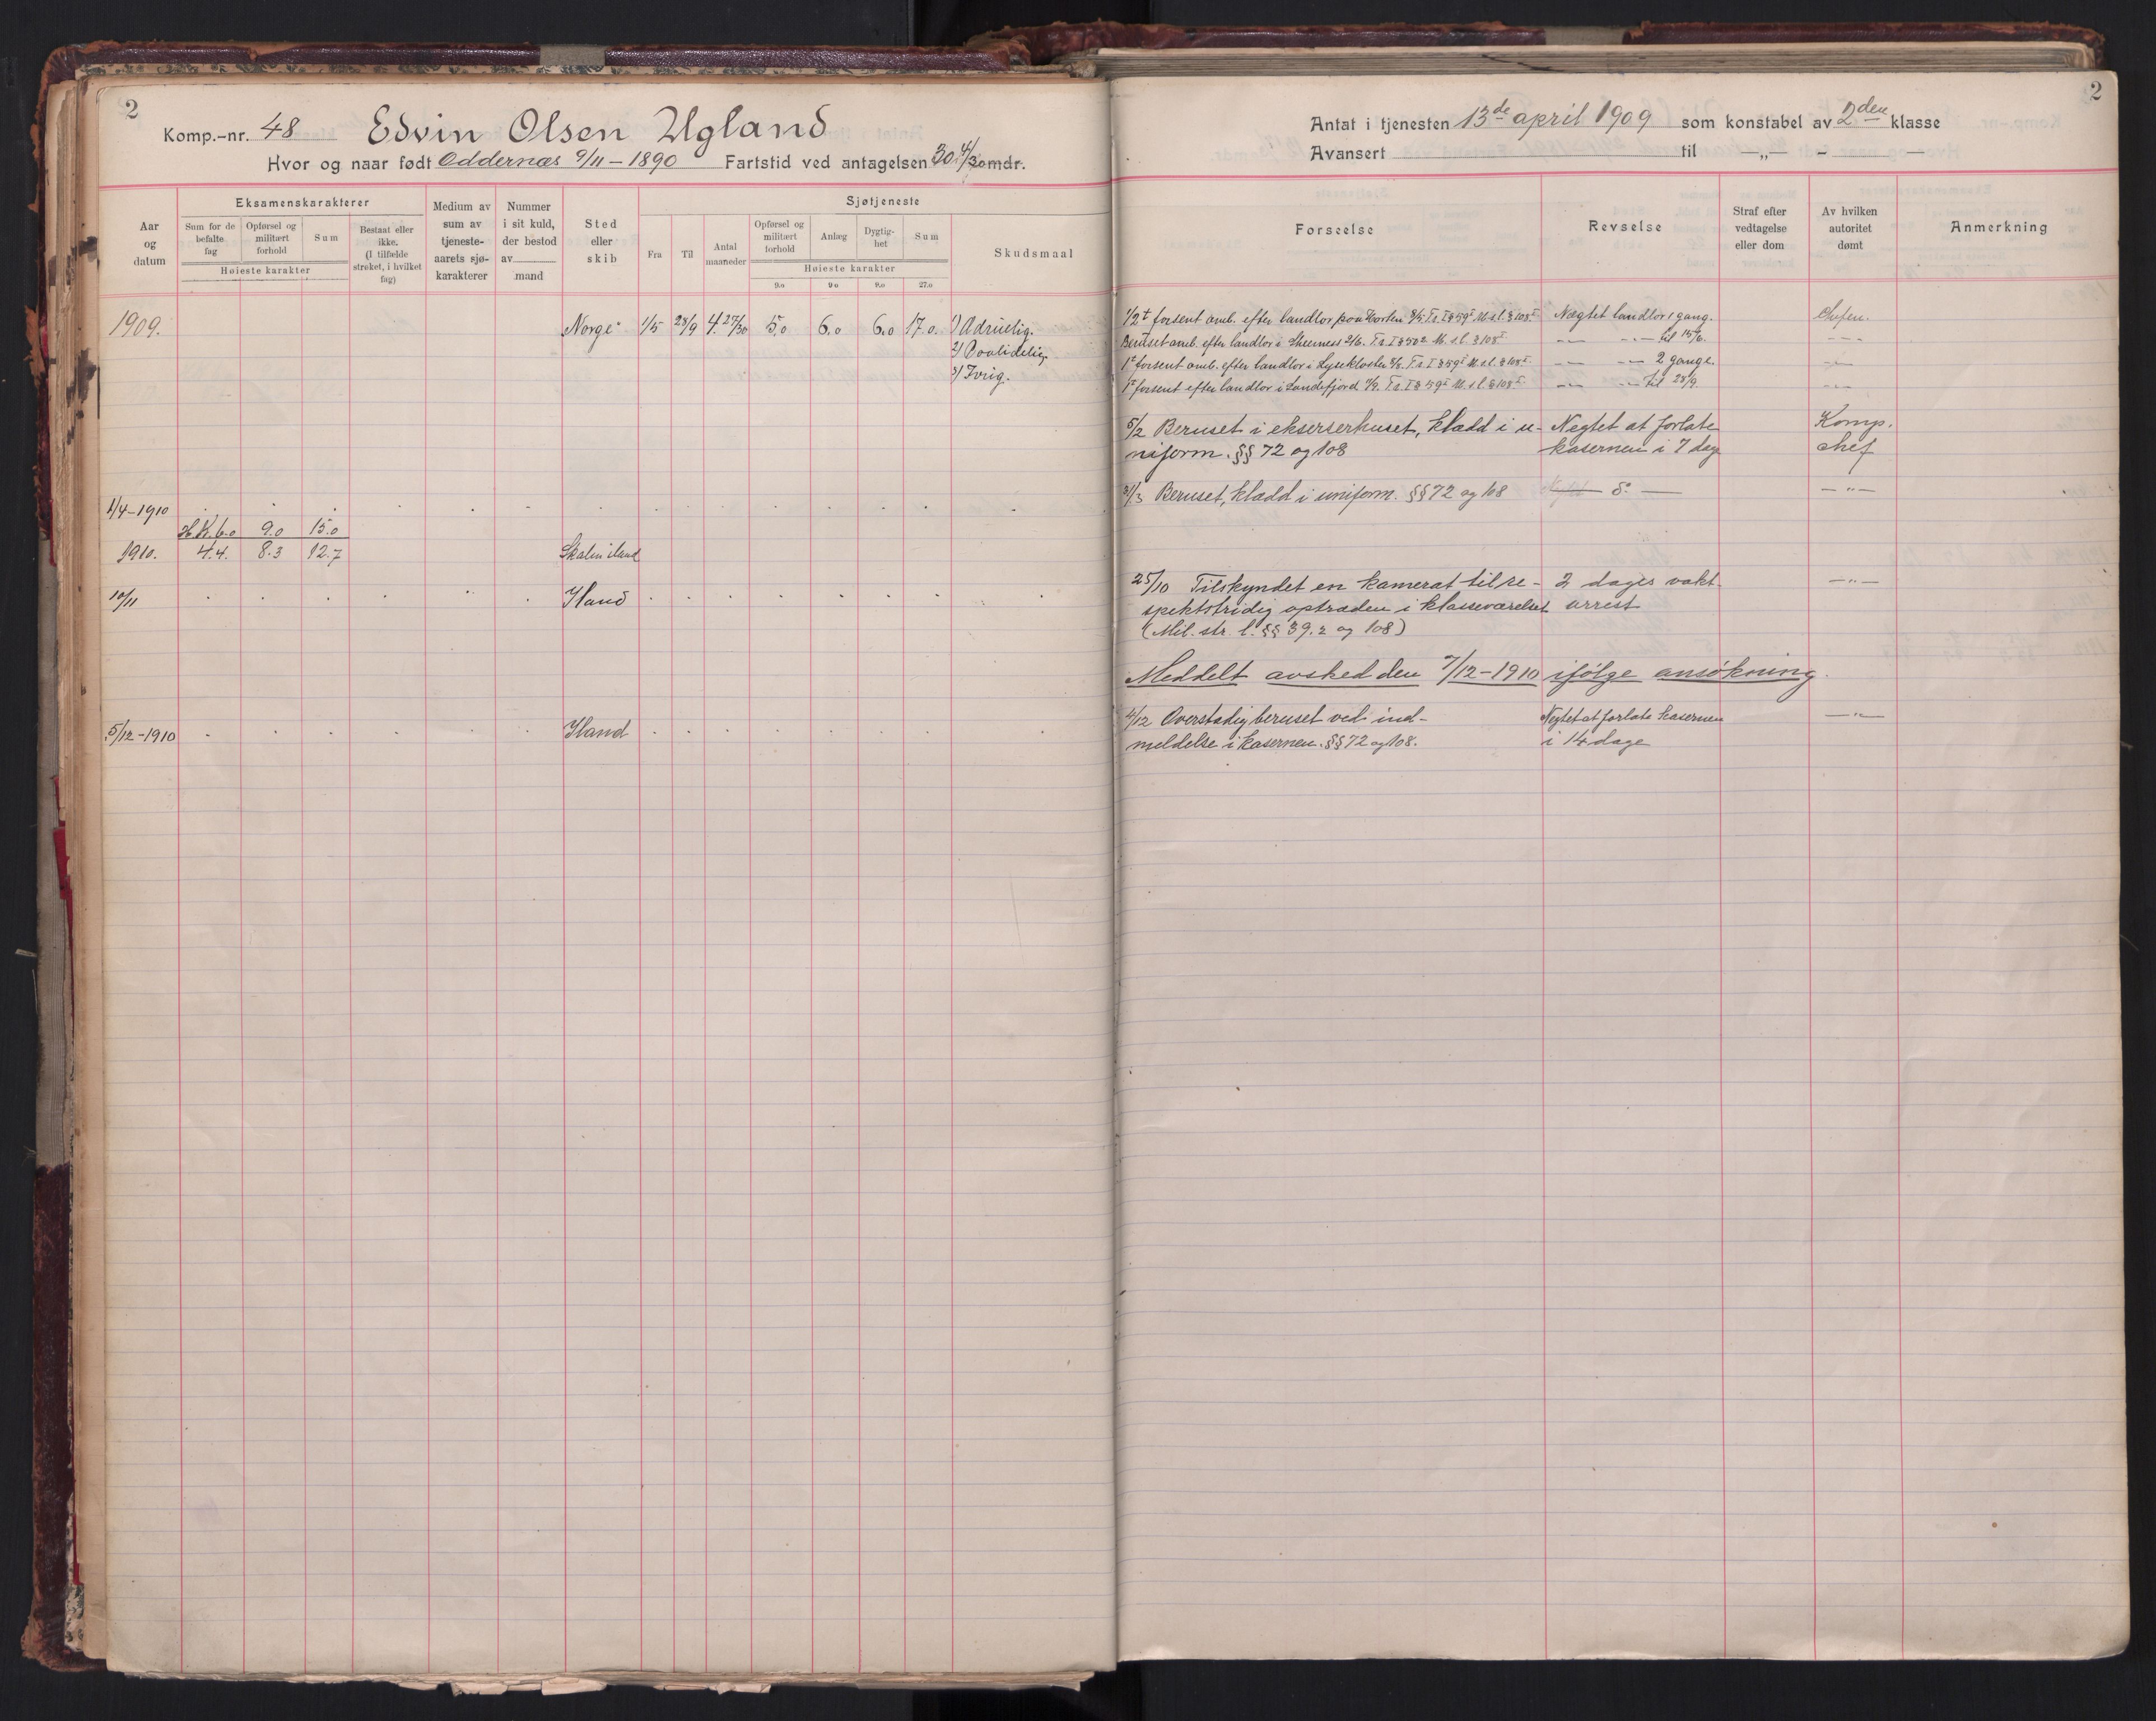 2
Komp.-nr. 48 Edvin Olsen Ugland
Hvor og naar født Oddernæs 9/11-1890 Fartstid ved antagelsen 30 4/30 mdr.
Aar og datum
Eksamenskarakterer
Sum for de befalte fag
Opførsel og militært forhold
Sum
Høieste karakter
Bestaat eller ikke. (I tilfælde strøket, i hvilket fag)
Medium av sum av tjeneste-aarets sjø-karakterer
Nummer i sit kuld, der bestod av mand
Sted eller skib
Sjøtjeneste
Fra
Til
Antal maaneder
Opførsel og militært forhold
Anlæg
Dygtig-het
Sum
Høieste karakter
9.0 9.0 9.0 27.0
Skudsmaal
1909. Norge 1/5 28/9 4.27/30 5.0 6.0 6.0 17.0 1) Ædruelig.
2) Paalidelig.
3) Ivrig.
1/4-1910
H.K. 6.0 9.0 15.0
1910. 4.4. 8.3 12.7 Skolen iland
10/11 Iland
5/12-1910 Iland
2
Antat i tjenesten 13de april 1909 som konstabel av 2den klasse
Avansert til — „ — - —
Forseelse
Revselse
Straf efter vedtagelse eller dom
Av hvilken autoritet dømt
Anmerkning
1/2t forsent omb. efter landlov paa Horten 8/5. § 59 M.s.l. § 108 Nægtet landlov 1 gang. Chefen.
Beruset omb. efter landlov i Sheerness 2/6. M.s.l. § 108 — " — til 15/6. — " —
1t forsent omb. efter landlov i Lysekloster § 59 M.s.l. § 108 — " — 2 gange. — " —
1t forsent efter landlov i Sandefjord § 59 M.s.l. § 108 — " — til 28/9. — " —
5/2 Beruset i ekserserhuset, klædd i u- Negtet at forlate Komp.
niform. §§ 72 og 108 kasernen i 7 dage chef
3/3 Beruset, klædd i uniform. §§ 72 og 108 — 8. — — " —
25/10 Tilskyndet en kamerat til re- 2 dages vakt — " —
spektstridig optræden i klasseværelset arrest
(Mil. str. l. §§ 39.2 og 108)
Meddelt avsked den 7/12-1910 ifølge ansøkning.
4/12 Overstadig beruset ved ind- Negtet at forlate kasernen — " —
meldelse i kasernen. §§ 72 og 108. i 14 dage